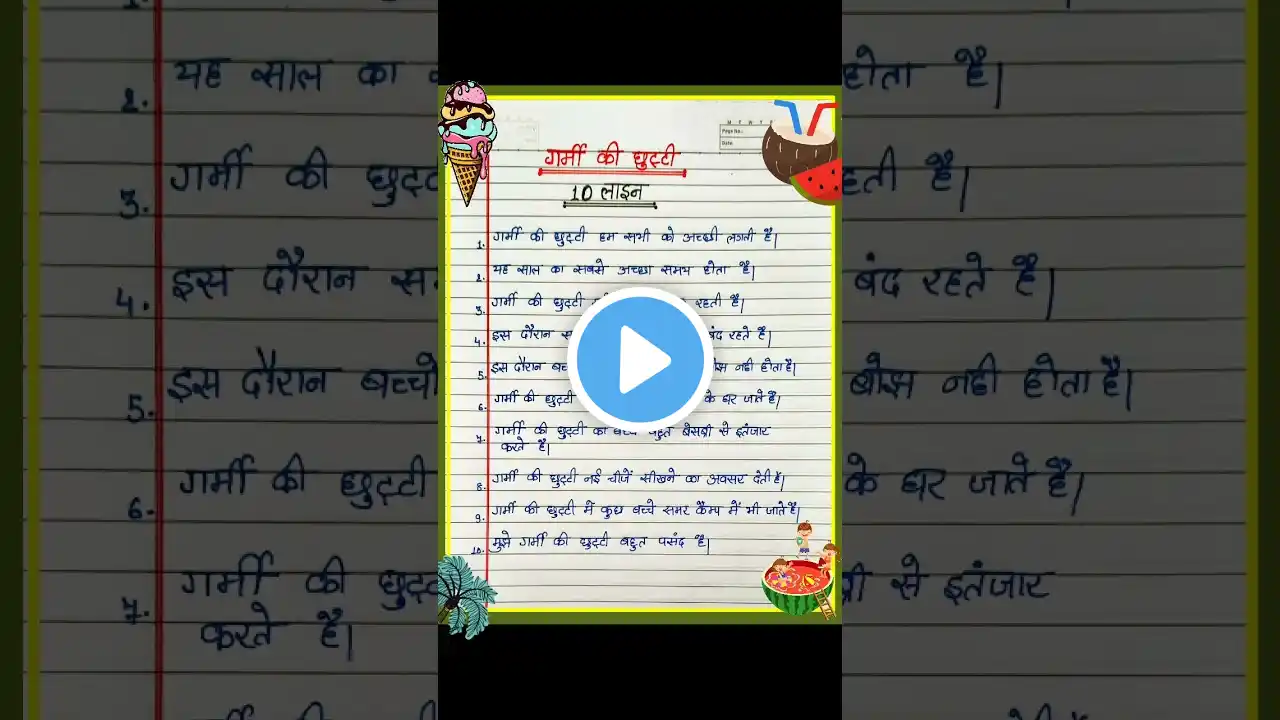 M T W T
Page No.:
Date:
गर्मी की छुट्टी
10 लाइन
1. गर्मी की छुट्टी हम सभी को अच्छी लगती है।
2. यह साल का सबसे अच्छा समय होता है।
3. गर्मी की छुट्टी रहती है।
4. इस दौरान बंद रहते है।
5. इस दौरान बोझ नही होता है।
6. गर्मी की छुट्टी के घर जाते है।
7. गर्मी की छुट्टी का बच्चे बहुत बेसब्री से इंतजार
करते है।
8. गर्मी की छुट्टी नई चीजें सीखने का अवसर देती है।
9. गर्मी की छुट्टी में कुछ बच्चे समर कैम्प में भी जाते है।
10. मुझे गर्मी की छुट्टी बहुत पसंद है।